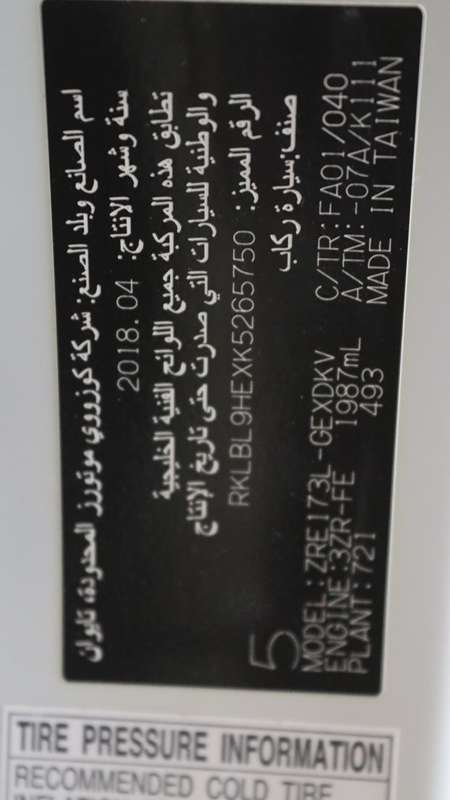 اسم الصانع وبلد الصنع: شركة كوزووي موتورز المحدودة، تايوان
سنة وشهر الانتاج: 2018.04
تطابق هذه المركبة جميع اللوائح الفنية الخليجية
والوطنية للسيارات التي صدرت حتى تاريخ الإنتاج
الرقم المميز: RKLBL9HEXK5265750
صنف:سيارة ركاب
5
MODEL:ZRE173L-GEXDKV C/TR:FA01/040
ENGINE:3ZR-FE 1987mL A/TM:-07A/K111
PLANT:721 493 MADE IN TAIWAN
TIRE PRESSURE INFORMATION
RECOMMENDED COLD TIRE